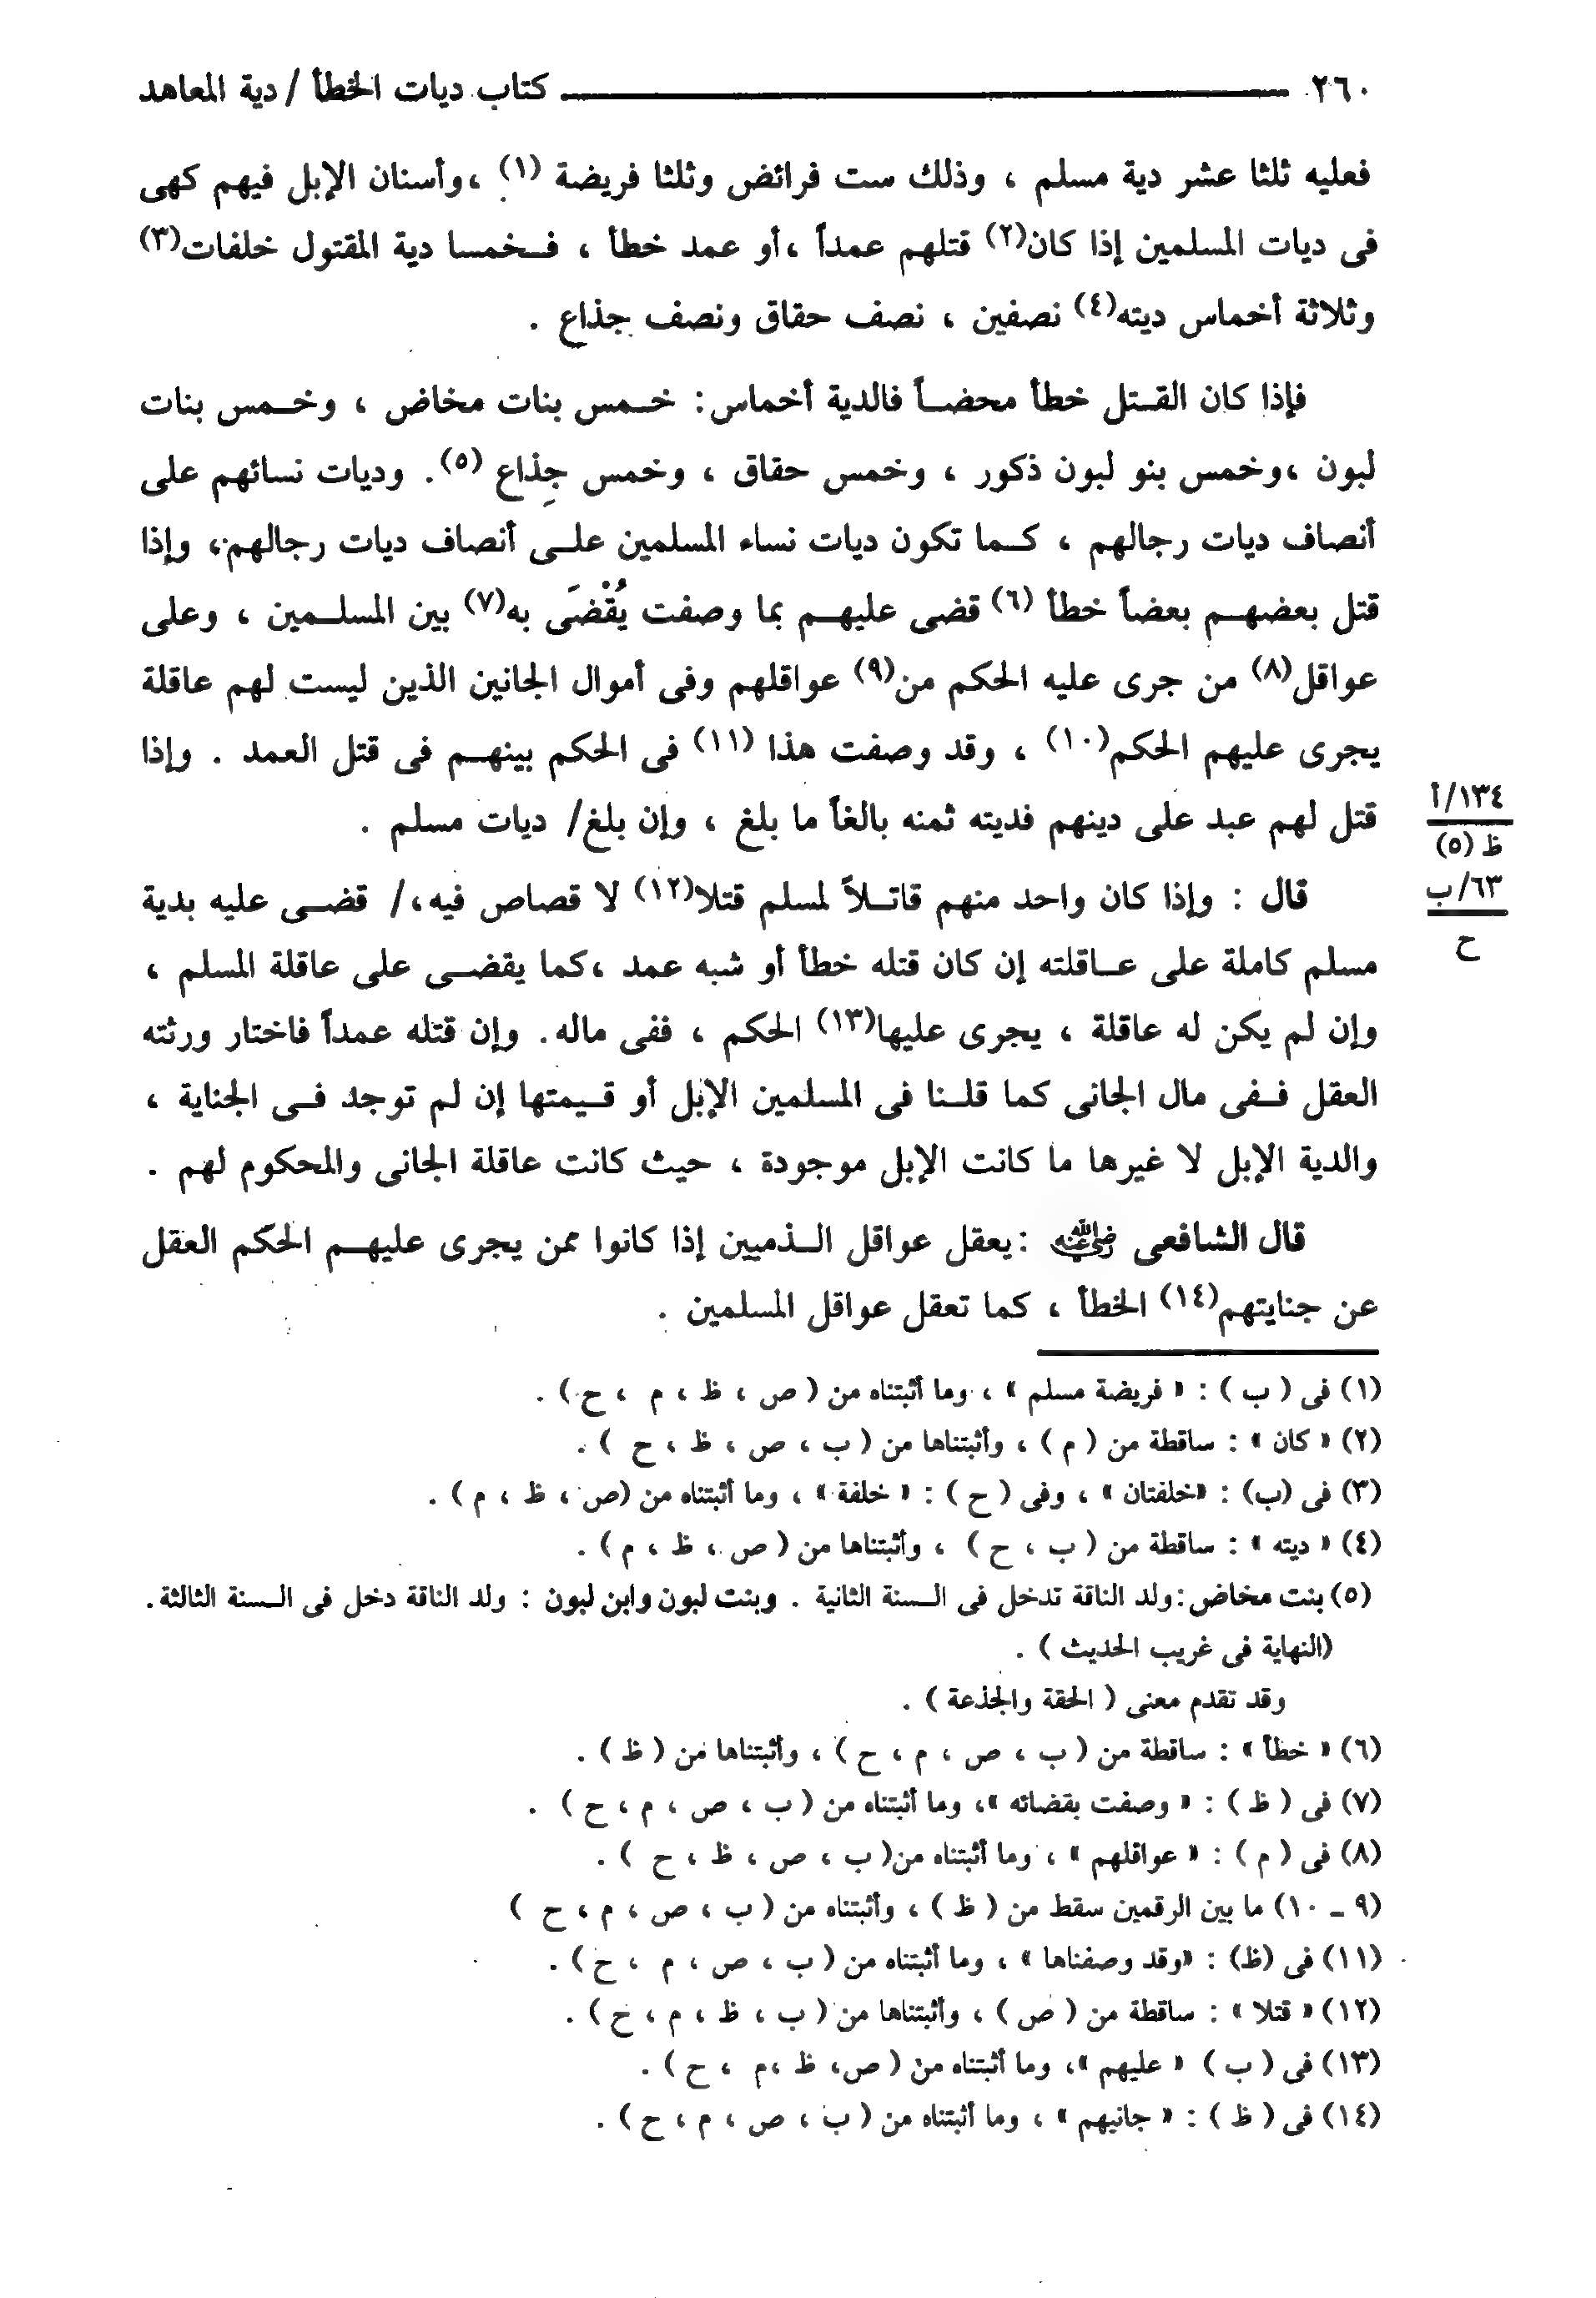 ٢٦٠ كتاب ديات الخطأ / دية المعاهد
فعليه ثلثا عشر دية مسلم ، وذلك ست فرائض وثلثا فريضة (١) ،وأسنان الإبل فيهم كهى
فى ديات المسلمين إذا كان(٢) قتلهم عمداً ،أو عمد خطأ ، فـخمسا دية المقتول خلفات(٣)
وثلاثة أخماس ديته(٤) نصفين ، نصف حقاق ونصف جذاع .
فإذا كان القـتل خطأ محضـاً فالدية أخماس: خـمس بنات مخاض ، وخـمس بنات
لبون ،وخمس بنو لبون ذكور ، وخمس حقاق ، وخمس جِذاع (٥). وديات نسائهم على
أنصاف ديات رجالهم ، كـما تكون ديات نساء المسلمين علـى أنصاف ديات رجالهم، وإذا
قتل بعضهـم بعضاً خطأ (٦) قضى عليهـم بما وصفت يُقْضَى به(٧) بين المسلـمين ، وعلى
عواقل(٨) من جرى عليه الحكم من(٩) عواقلهم وفى أموال الجانين الذين ليست لهم عاقلة
يجرى عليهم الحكم(١٠) ، وقد وصفت هذا (١١) فى الحكم بينهـم فى قتل العمد . وإذا
قتل لهم عبد على دينهم فديته ثمنه بالغاً ما بلغ ، وإن بلغ/ ديات مسلم .
١٣٤/أ
ظ (٥)
قال : وإذا كان واحد منهم قاتـلاً لمسلم قتلا(١٢) لا قصاص فيه،/ قضـى عليه بدية
٦٣/ب
ح
مسلم كاملة على عـاقلته إن كان قتله خطأ أو شبه عمد ،كما يقضـى على عاقلة المسلم ،
وإن لم يكن له عاقلة ، يجرى عليها(١٣) الحكم ، ففى ماله. وإن قتله عمداً فاختار ورثته
العقل فـفى مال الجانى كما قلـنا فى المسلمين الإبل أو قـيمتها إن لم توجد فـى الجناية ،
والدية الإبل لا غيرها ما كانت الإبل موجودة ، حيث كانت عاقلة الجانى والمحكوم لهم .
قال الشافعى رضي الله عنه :يعقل عواقل الـذميين إذا كانوا ممن يجرى عليهـم الحكم العقل
عن جنايتهم(١٤) الخطأ ، كما تعقل عواقل المسلمين .
(١) فى ( ب ) : « فريضة مسلم » ، وما أثبتناه من ( ص ، ظ ، م ، ح ) .
(٢) « كان » : ساقطة من ( م ) ، وأثبتناها من ( ب ، ص ، ظ ، ح ) .
(٣) فى (ب) : «خلفتان » ، وفى ( ح ) : « خلفة » ، وما أثبتناه من (ص ، ظ ، م ) .
(٤) « ديته » : ساقطة من ( ب ، ح ) ، وأثبتناها من ( ص ، ظ ، م ) .
(٥) بنت مخاض :ولد الناقة تدخل فى الـسنة الثانية . وبنت لبون وابن لبون : ولد الناقة دخل فى الـسنة الثالثة .
(النهاية فى غريب الحديث ) .
وقد تقدم معنى ( الحقة والجذعة ) .
(٦) « خطأ » : ساقطة من ( ب ، ص ، م ، ح ) ، وأثبتناها من ( ظ ) .
(٧) فى ( ظ ) : « وصفت بقضائه »، وما أثبتناه من ( ب ، ص ، م ، ح ) .
(٨) فى ( م ) : « عواقلهم » ، وما أثبتناه من( ب ، ص ، ظ ، ح ) .
(٩ ـ ١٠) ما بين الرقمين سقط من ( ظ ) ، وأثبتناه من ( ب ، ص ، م ، ح )
(١١) فى (ظ) : «وقد وصفناها » ، وما أثبتناه من ( ب ، ص ، م ، ح ) .
(١٢) « قتلا » : ساقطة من ( ص ) ، وأثبتناها من ( ب ، ظ ، م ، ح ) .
(١٣) فى ( ب ) « عليهم »، وما أثبتناه من ( ص، ظ ،م ، ح ) .
(١٤) فى ( ظ ) : « جانيهم » ، وما أثبتناه من ( ب ، ص ، م ، ح ) .